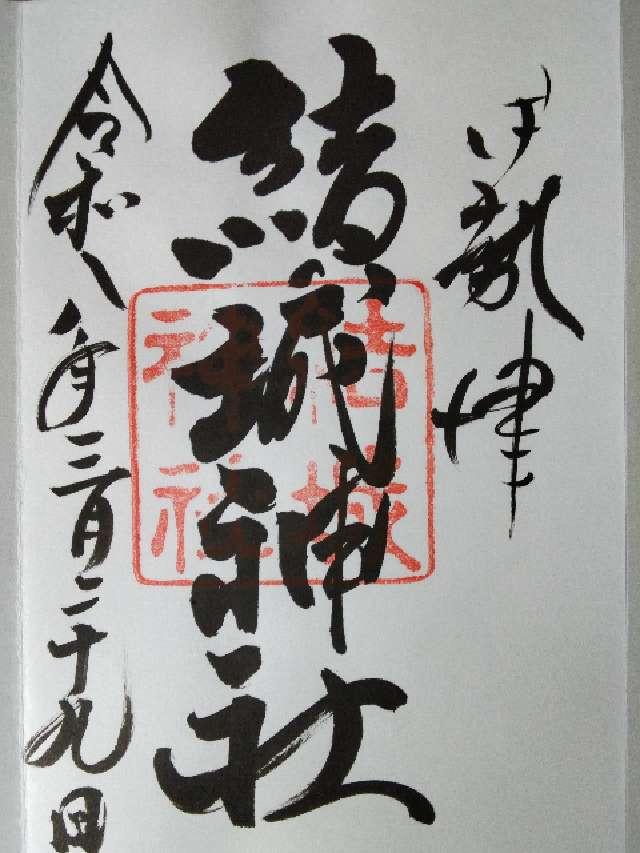 伊勢津
結城神社
結城神社
令和八年三月二十九日